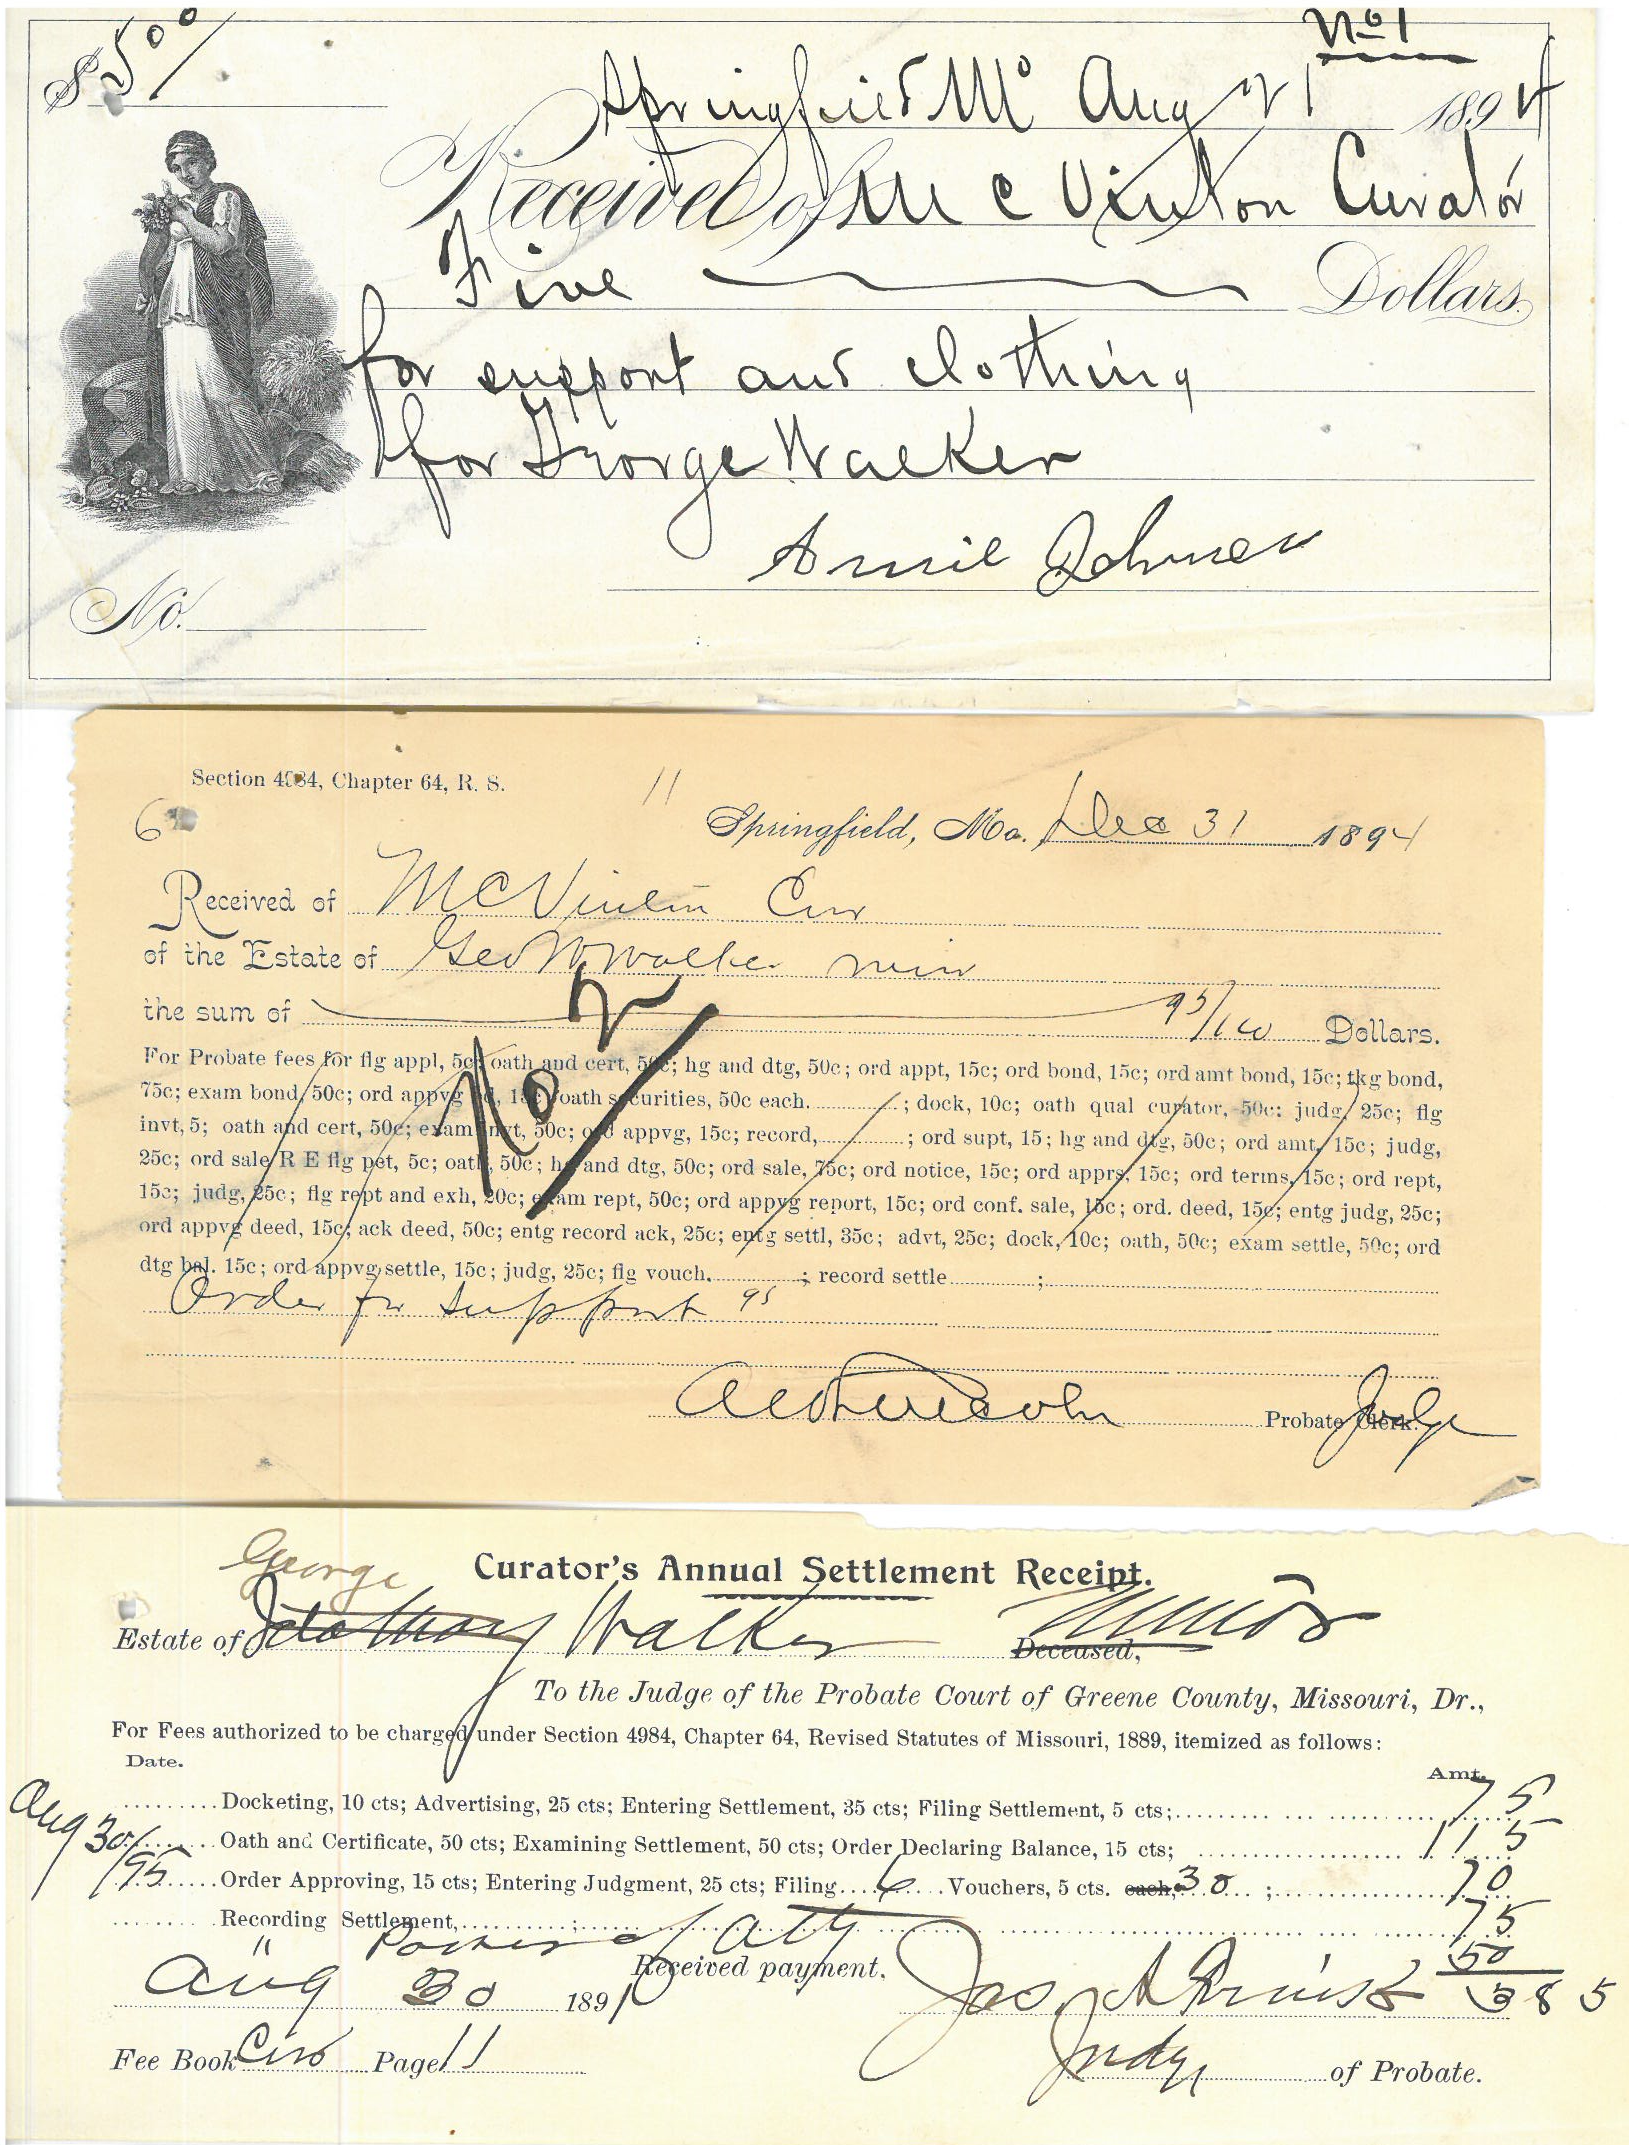 No 1
$ 5 00/
Springfield Mo Aug 21 1894
Received of M C Vinton Curator
Five Dollars.
for support and clothing
for George Walker
Annie Johnson
No.
Section 4984, Chapter 64, R. S.
11
6
Springfield, Mo. Dec 31 1894
Received of M C Vinton Cur
of the Estate of Geo W Walker min
the sum of 95/100 Dollars.
No 2
For Probate fees for flg appl, 5c; oath and cert, 50c; hg and dtg, 50c; ord appt, 15c; ord bond, 15c; ord amt bond, 15c; tkg bond,
75c; exam bond, 50c; ord appvg bd, 15c; oath securities, 50c each. ; dock, 10c; oath qual curator, 50c; judg, 25c; flg
invt, 5; oath and cert, 50c; exam invt, 50c; ord appvg, 15c; record, ; ord supt, 15; hg and dtg, 50c; ord amt, 15c; judg,
25c; ord sale R E flg pet, 5c; oath, 50c; hg and dtg, 50c; ord sale, 75c; ord notice, 15c; ord apprs, 15c; ord terms, 15c; ord rept,
15c; judg, 25c; flg rept and exh, 20c; exam rept, 50c; ord appvg report, 15c; ord conf. sale, 15c; ord. deed, 15c; entg judg, 25c;
ord appvg deed, 15c; ack deed, 50c; entg record ack, 25c; entg settl, 35c; advt, 25c; dock, 10c; oath, 50c; exam settle, 50c; ord
dtg bal. 15c; ord appvg settle, 15c; judg, 25c; flg vouch. ; record settle ;
Order for support 95
Probate Clerk. Judge
Curator's Annual Settlement Receipt.
George
Estate of Walker Deceased, Minor
To the Judge of the Probate Court of Greene County, Missouri, Dr.,
For Fees authorized to be charged under Section 4984, Chapter 64, Revised Statutes of Missouri, 1889, itemized as follows:
Date. Amt.
Docketing, 10 cts; Advertising, 25 cts; Entering Settlement, 35 cts; Filing Settlement, 5 cts; 75
Aug 30/95 Oath and Certificate, 50 cts; Examining Settlement, 50 cts; Order Declaring Balance, 15 cts; 1 15
Order Approving, 15 cts; Entering Judgment, 25 cts; Filing 6 Vouchers, 5 cts. each, 30 ; 70
Recording Settlement, ; 75
" Power of Atty 50
Received payment, 3 85
Aug 30 189
Jas
Fee Book Page 11 Judge of Probate.